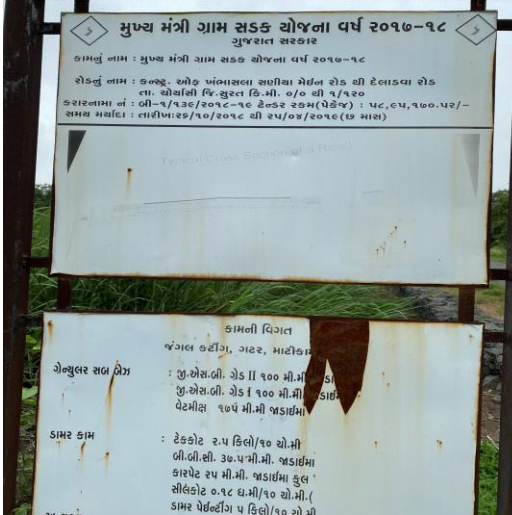 મુખ્ય મંત્રી ગ્રામ સડક યોજના વર્ષ ૨૦૧૭-૧૮
ગુજરાત સરકાર
કામનું નામ : મુખ્ય મંત્રી ગ્રામ સડક યોજના વર્ષ ૨૦૧૭-૧૮
રોડનું નામ : કન્સ્ટ્ર. ઓફ ખંભાસલા સણીયા મેઈન રોડ થી દેલાડવા રોડ
તા. ચોર્યાસી જિ.સુરત કિ.મી. ૦/૦ થી ૧/૧૨૦
કરારનામા નં : બી-૧/૧૩૯/૨૦૧૮-૧૯ ટેન્ડર રકમ(પેકેજ) : ૫૮,૯૫,૧૭૦.૫૨/-
સમય મર્યાદા : તારીખઃ૨૬/૧૦/૨૦૧૮ થી ૨૫/૦૪/૨૦૧૯(૭ માસ)
Typical Cross Section of a Road
કામની વિગત
જંગલ કટીંગ, ગટર, માટીકામ
ગ્રેન્યુલર સબ બેઝ : જી.એસ.બી. ગ્રેડ II ૧૦૦ મી.મી
જી.એસ.બી. ગ્રેડ I ૧૦૦ મી.મી.
વેટમીક્ષ ૧૭૫ મી.મી જાડાઈમા
ડામર કામ : ટેકકોટ ૨.૫ કિલો/૧૦ ચો.મી
બી.બી.સી. ૩૭.૫ મી.મી. જાડાઈમા
કારપેટ ૨૫ મી.મી. જાડાઈમા કુલ
સીલકોટ ૦.૧૮ ઘ.મી/૧૦ ચો.મી.(
ડામર પેઈન્ટીંગ ૫ કિલો/૧૦ ચો.મી